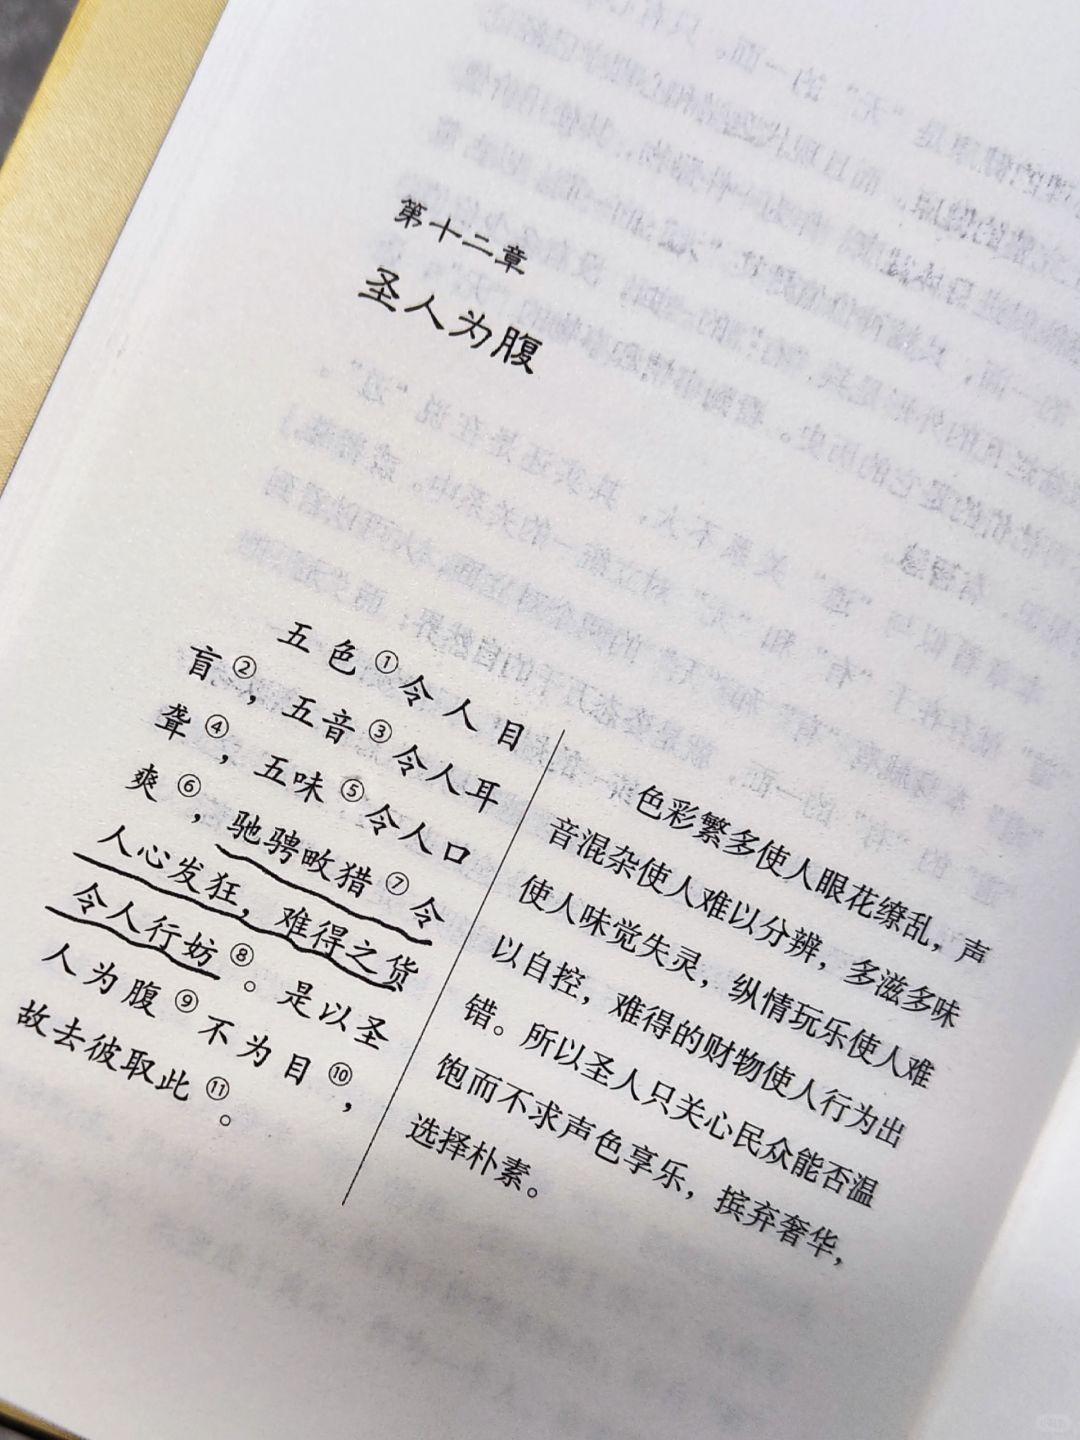 第十二章
圣人为腹
五色①令人目
盲②，五音③令人耳
聋④，五味⑤令人口
爽⑥，驰骋畋猎⑦令
人心发狂，难得之货
令人行妨⑧。是以圣
人为腹⑨不为目⑩，
故去彼取此⑪。
色彩繁多使人眼花缭乱，声
音混杂使人难以分辨，多滋多味
使人味觉失灵，纵情玩乐使人难
以自控，难得的财物使人行为出
错。所以圣人只关心民众能否温
饱而不求声色享乐，摈弃奢华，
选择朴素。